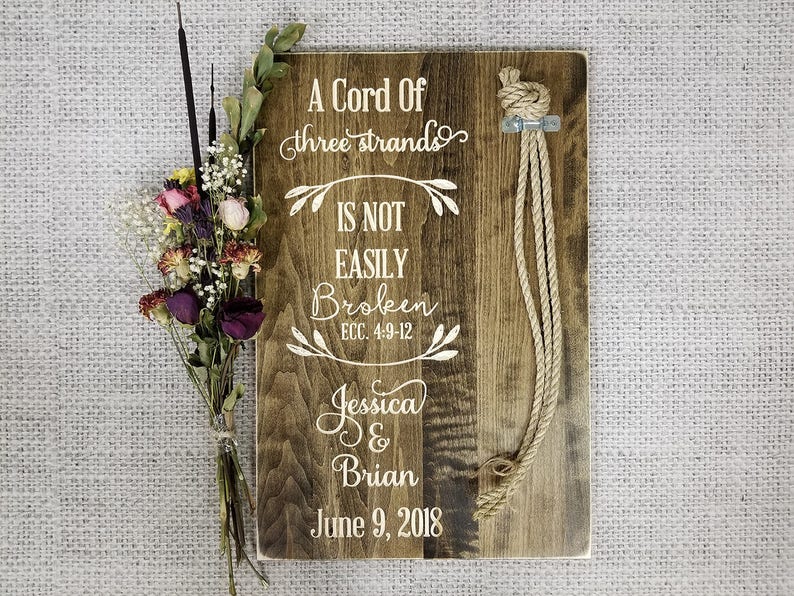 A Cord Of
three strands
IS NOT
EASILY
Broken
ECC. 4:9-12
Jessica
&
Brian
June 9, 2018